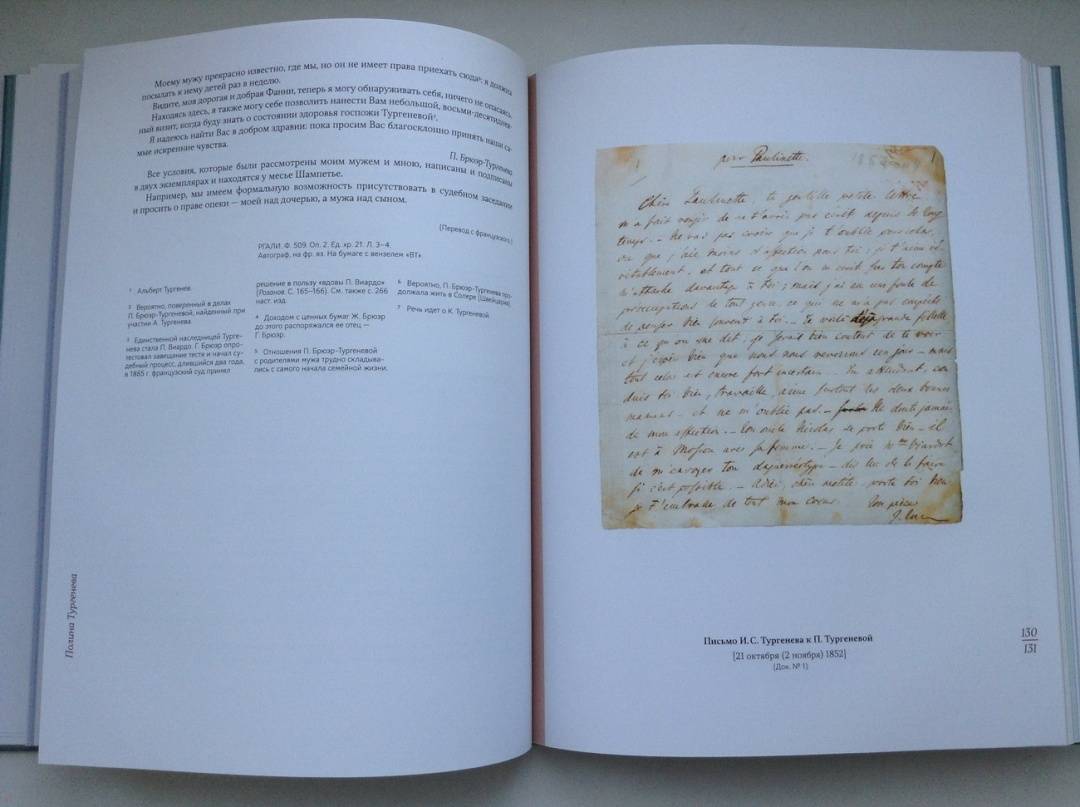 Моему мужу прекрасно известно, где мы, но он не имеет права приехать сюда⁶: я должна
посылать к нему детей раз в неделю.
Видите, моя дорогая и добрая Фанни, теперь я могу обнаруживать себя, ничего не опасаясь.
Находясь здесь, я также могу себе позволить нанести Вам небольшой, восьми-десятиднев-
ный визит, когда буду знать о состоянии здоровья госпожи Тургеневой⁷.
Я надеюсь найти Вас в добром здравии: пока просим Вас благосклонно принять наши са-
мые искренние чувства.
П. Брюэр-Тургенева
Все условия, которые были рассмотрены моим мужем и мною, написаны и подписаны
в двух экземплярах и находятся у месье Шампетье.
Например, мы имеем формальную возможность присутствовать в судебном заседании
и просить о праве опеки — моей над дочерью, а мужа над сыном.
(Перевод с французского.)
РГАЛИ. Ф. 509. Оп. 2. Ед. хр. 21. Л. 3–4.
Автограф, на фр. яз. На бумаге с вензелем «ВТ».
¹ Альберт Тургенев.
² Вероятно, поверенный в делах
П. Брюэр-Тургеневой, найденный при
участии А. Тургенева.
³ Единственной наследницей Турге-
нева стала П. Виардо. Г. Брюэр опро-
тестовал завещание тестя и начал су-
дебный процесс, длившийся два года;
в 1885 г. французский суд принял
решение в пользу «вдовы П. Виардо»
(Розанов. С. 165–166). См. также с. 266
наст. изд.
⁴ Доходом с ценных бумаг Ж. Брюэр
до этого распоряжался ее отец —
Г. Брюэр.
⁵ Отношения П. Брюэр-Тургеневой
с родителями мужа трудно складыва-
лись с самого начала семейной жизни.
⁶ Вероятно, П. Брюэр-Тургенева про-
должала жить в Солере (Швейцария).
⁷ Речь идет о К. Тургеневой.
Полина Тургенева
pour Paulinette.
Chère Paulinette, ta gentille petite lettre
m'a fait rougir de ne t'avoir pas écrit depuis si long
temps. — Ne vas pas croire que je t'oublie pour cela,
ou que j'aie moins d'affection pour toi; je t'aime vé-
ritablement, et tout ce que l'on m'écrit sur ton compte
m'attache davantage à toi; mais j'ai eu une foule de
préoccupations de tout genre, ce qui ne m'a pas empêché
de penser bien souvent à toi. — Te voilà déjà grande fillette
à ce qu'on me dit; je serais bien content de te voir
et j'espère bien que nous nous reverrons un jour — mais
tout cela est encore fort incertain. — En attendant, con
duis toi bien, travaille, aime surtout les deux bonnes
mamans — et ne m'oublie pas. — Ne doute jamais
de mon affection. — Ton oncle Nicolas se porte bien — il
est à Moscou avec sa femme. — Je prie Mme Viardot
de m'envoyer ton daguerréotype — dis lui de le faire
si c'est possible. — Adieu, chère petite, porte toi bien
je t'embrasse de tout mon cœur. Ton père
Письмо И. С. Тургенева к П. Тургеневой
[21 октября (2 ноября) 1852]
(Док. № 1)
130
131